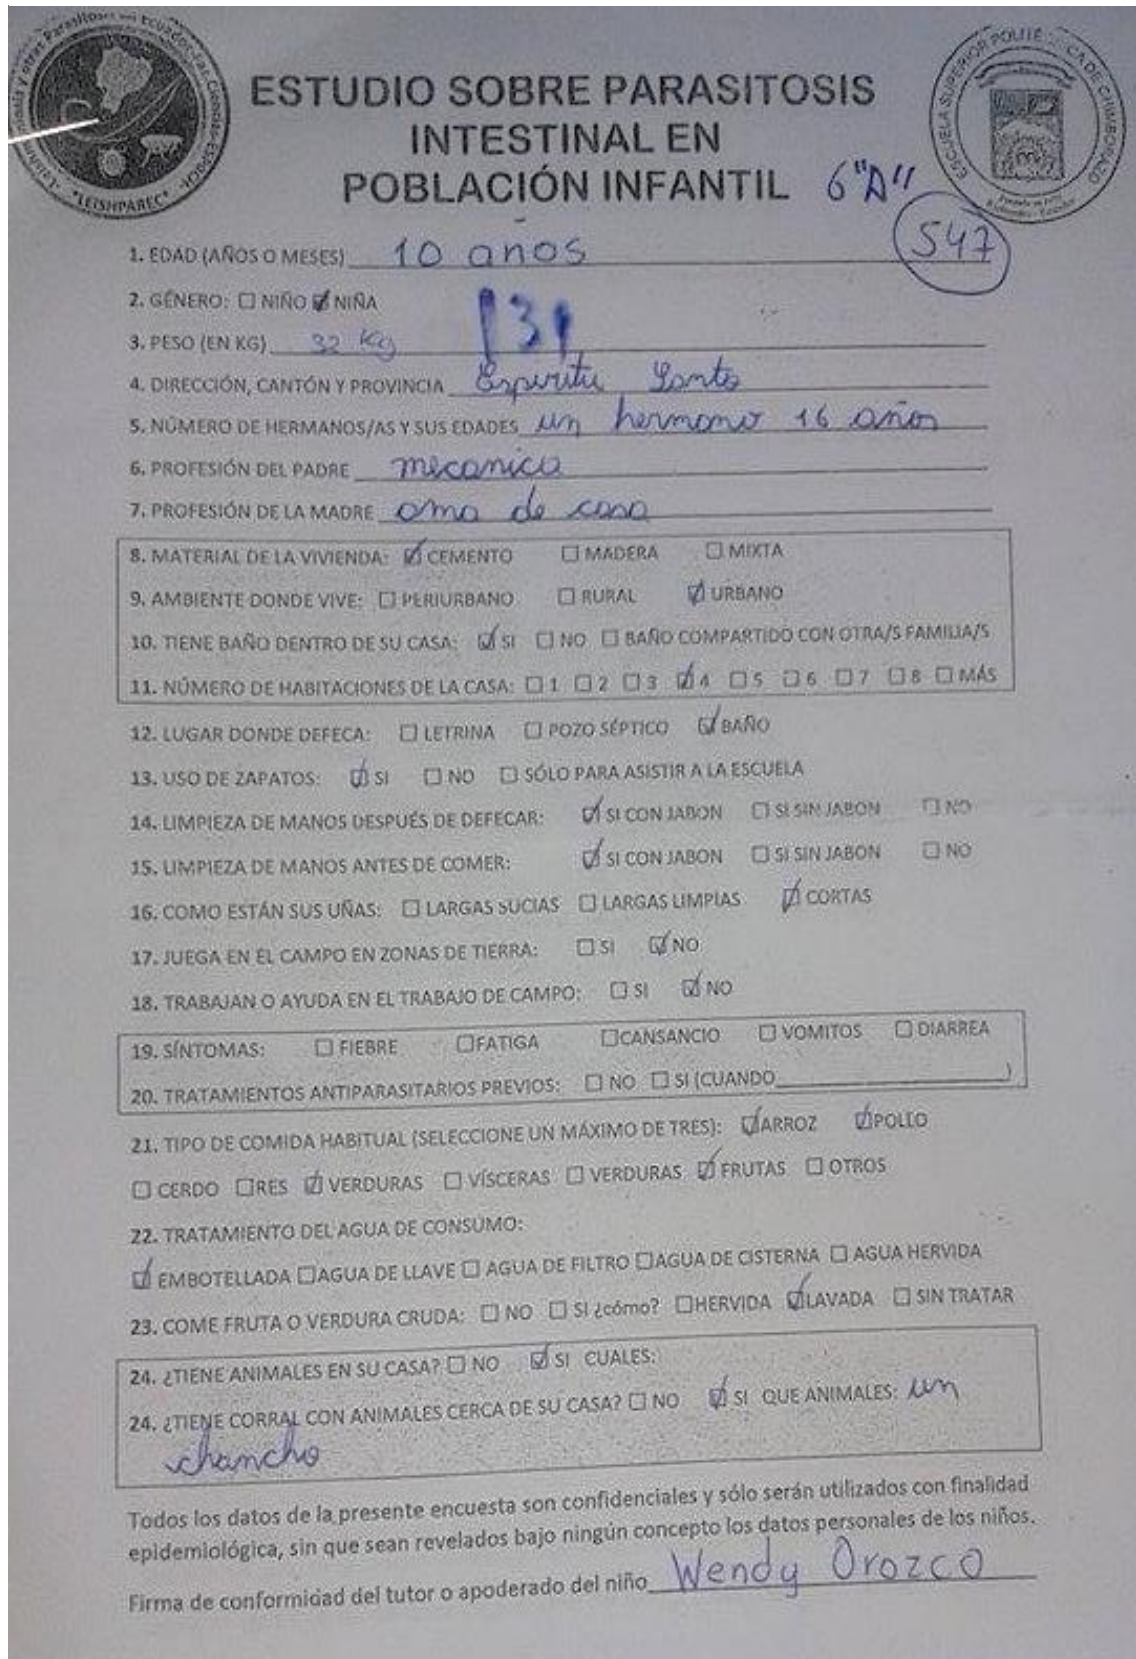 ESTUDIO SOBRE PARASITOSIS
INTESTINAL EN
POBLACIÓN INFANTIL 6"A"
"LEISHPAREC"
ESCUELA SUPERIOR POLITÉCNICA DE CHIMBORAZO
547
1. EDAD (AÑOS O MESES) 10 años
2. GÉNERO: ☐ NIÑO ☑ NIÑA
3. PESO (EN KG) 32 Kg
4. DIRECCIÓN, CANTÓN Y PROVINCIA Espiritu Santo
5. NÚMERO DE HERMANOS/AS Y SUS EDADES un hermano 16 años
6. PROFESIÓN DEL PADRE mecanico
7. PROFESIÓN DE LA MADRE ama de casa
8. MATERIAL DE LA VIVIENDA: ☑ CEMENTO ☐ MADERA ☐ MIXTA
9. AMBIENTE DONDE VIVE: ☐ PERIURBANO ☐ RURAL ☑ URBANO
10. TIENE BAÑO DENTRO DE SU CASA: ☑ SI ☐ NO ☐ BAÑO COMPARTIDO CON OTRA/S FAMILIA/S
11. NÚMERO DE HABITACIONES DE LA CASA: ☐ 1 ☐ 2 ☐ 3 ☑ 4 ☐ 5 ☐ 6 ☐ 7 ☐ 8 ☐ MÁS
12. LUGAR DONDE DEFECA: ☐ LETRINA ☐ POZO SÉPTICO ☑ BAÑO
13. USO DE ZAPATOS: ☑ SI ☐ NO ☐ SÓLO PARA ASISTIR A LA ESCUELA
14. LIMPIEZA DE MANOS DESPUÉS DE DEFECAR: ☑ SI CON JABON ☐ SI SIN JABON ☐ NO
15. LIMPIEZA DE MANOS ANTES DE COMER: ☑ SI CON JABON ☐ SI SIN JABON ☐ NO
16. COMO ESTÁN SUS UÑAS: ☐ LARGAS SUCIAS ☐ LARGAS LIMPIAS ☑ CORTAS
17. JUEGA EN EL CAMPO EN ZONAS DE TIERRA: ☐ SI ☑ NO
18. TRABAJAN O AYUDA EN EL TRABAJO DE CAMPO: ☐ SI ☑ NO
19. SÍNTOMAS: ☐ FIEBRE ☐ FATIGA ☐ CANSANCIO ☐ VOMITOS ☐ DIARREA
20. TRATAMIENTOS ANTIPARASITARIOS PREVIOS: ☐ NO ☐ SI (CUANDO____)
21. TIPO DE COMIDA HABITUAL (SELECCIONE UN MÁXIMO DE TRES): ☑ ARROZ ☑ POLLO
☐ CERDO ☐ RES ☑ VERDURAS ☐ VÍSCERAS ☐ VERDURAS ☑ FRUTAS ☐ OTROS
22. TRATAMIENTO DEL AGUA DE CONSUMO:
☑ EMBOTELLADA ☐ AGUA DE LLAVE ☐ AGUA DE FILTRO ☐ AGUA DE CISTERNA ☐ AGUA HERVIDA
23. COME FRUTA O VERDURA CRUDA: ☐ NO ☐ SI ¿cómo? ☐ HERVIDA ☑ LAVADA ☐ SIN TRATAR
24. ¿TIENE ANIMALES EN SU CASA? ☐ NO ☑ SI CUALES:
24. ¿TIENE CORRAL CON ANIMALES CERCA DE SU CASA? ☐ NO ☑ SI QUE ANIMALES: un
chancho
Todos los datos de la presente encuesta son confidenciales y sólo serán utilizados con finalidad
epidemiológica, sin que sean revelados bajo ningún concepto los datos personales de los niños.
Firma de conformidad del tutor o apoderado del niño Wendy Orozco